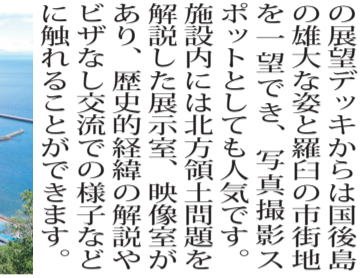 の展望デッキからは国後島
の雄大な姿と羅臼の市街地
を一望でき、写真撮影ス
ポットとしても人気です。
施設内には北方領土問題を
解説した展示室、映像室が
あり、歴史的経緯の解説や
ビザなし交流での様子など
に触れることができます。